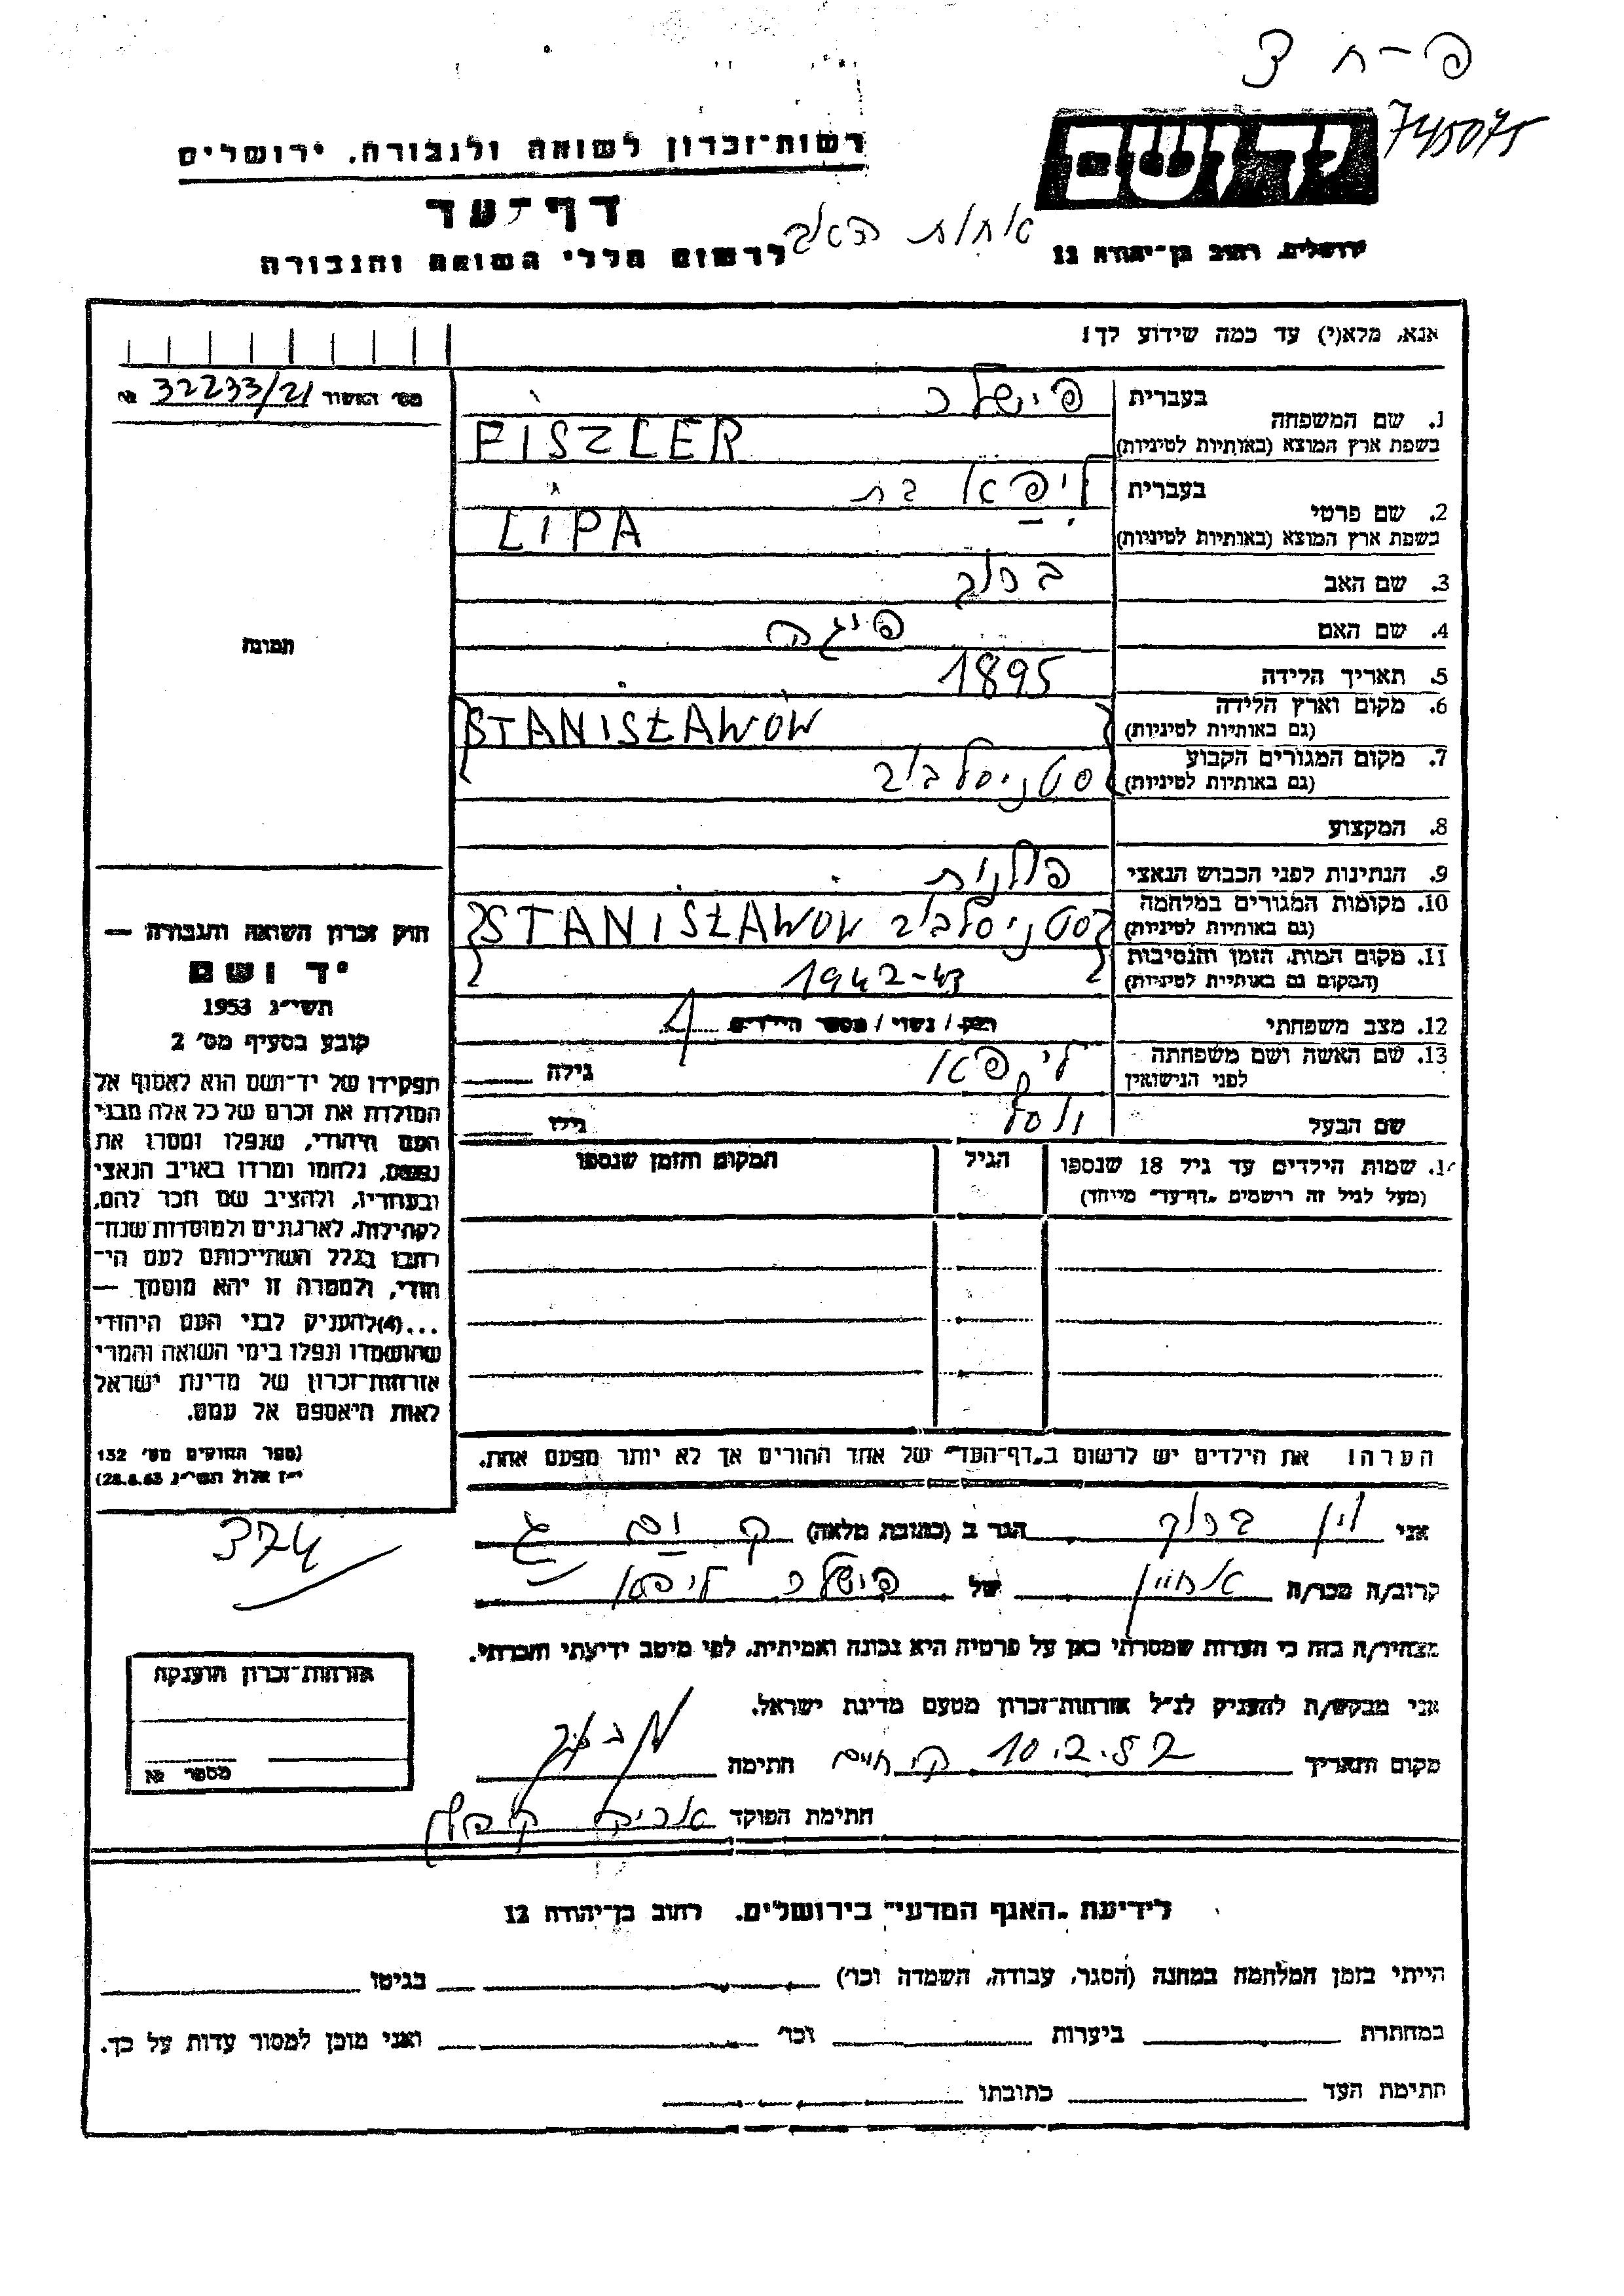 פ-ח צ
745075
יד ושם
רשות־זכרון לשואה ולגבורה, ירושלים
דף־עד
אחות האב
לרשום חללי השואה והגבורה
ירושלים, רחוב בן־יהודה 12
אנא, מלא(י) עד כמה שידוע לך!
מס׳ האשור 32233/21 №
1. שם המשפחה
בעברית פישלר
בשפת ארץ המוצא (באותיות לטיניות) FISZLER
2. שם פרטי
בעברית ליפא בת
בשפת ארץ המוצא (באותיות לטיניות) LIPA
3. שם האב ברוך
4. שם האם פיגה
5. תאריך הלידה 1895
6. מקום וארץ הלידה STANISŁAWOW
(גם באותיות לטיניות)
7. מקום המגורים הקבוע סטניסלבוב
(גם באותיות לטיניות)
8. המקצוע
9. הנתינות לפני הכבוש הנאצי פולנית
10. מקומות המגורים במלחמה סטניסלבוב STANISŁAWOW
(גם באותיות לטיניות)
11. מקום המות, הזמן והנסיבות 1942-43
(המקום גם באותיות לטיניות)
12. מצב משפחתי רוק / נשוי / מספר הילדים 4
13. שם האשה ושם משפחתה ליפא גילה
לפני הנישואין
שם הבעל יוסף גילו
14. שמות הילדים עד גיל 18 שנספו הגיל המקום והזמן שנספו
(מעל לגיל זה רישמים „דף־עד״ מייוחד)
הערה! את הילדים יש לרשום ב„דף־העד״ של אחד ההורים אך לא יותר מפעם אחת.
תמונה
חוק זכרון השואה והגבורה —
יד ושם
תשי״ג 1953
קובע בסעיף מס׳ 2
תפקידו של יד־ושם הוא לאסוף אל
המולדת את זכרם של כל אלה מבני
העם היהודי, שנפלו ומסרו את
נפשם, נלחמו ומרדו באויב הנאצי
ובעוזריו, ולהציב שם וזכר להם,
לקהילות, לארגונים ולמוסדות שנח־
רחבו בגלל השתייכותם לעם הי־
הודי, ולמטרה זו יהא מוסמך —
...(4) להעניק לבני העם היהודי
שהושמדו ונפלו בימי השואה והמרי
אזרחות־זכרון של מדינת ישראל
לאות היאספם אל עמם.
(ספר החוקים מס׳ 132
י״ז אלול תשי״ג 28.8.53)
374
אני ברוך הגר ב (כתובת מלאה)
קרוב/ה מכר/ה אחיין של פישלר ליפא
מצהיר/ה בזה כי העדות שמסרתי כאן על פרטיה היא נכונה ואמיתית, לפי מיטב ידיעתי והכרתי.
אני מבקש/ת להעניק לנ״ל אזרחות־זכרון מטעם מדינת ישראל.
מקום ותאריך 10.2.57 קר׳ חיים חתימה
חתימת הפוקד
אזרחות־זכרון הוענקה
מספר №
לידיעת „האגף המדעי״ בירושלים, רחוב בן־יהודה 12
הייתי בזמן המלחמה במחנה (הסגר, עבודה, השמדה וכו׳) בגיטו
במחתרת ביערות וכו׳ ואני מוכן למסור עדות על כך.
חתימת העד כתובתו